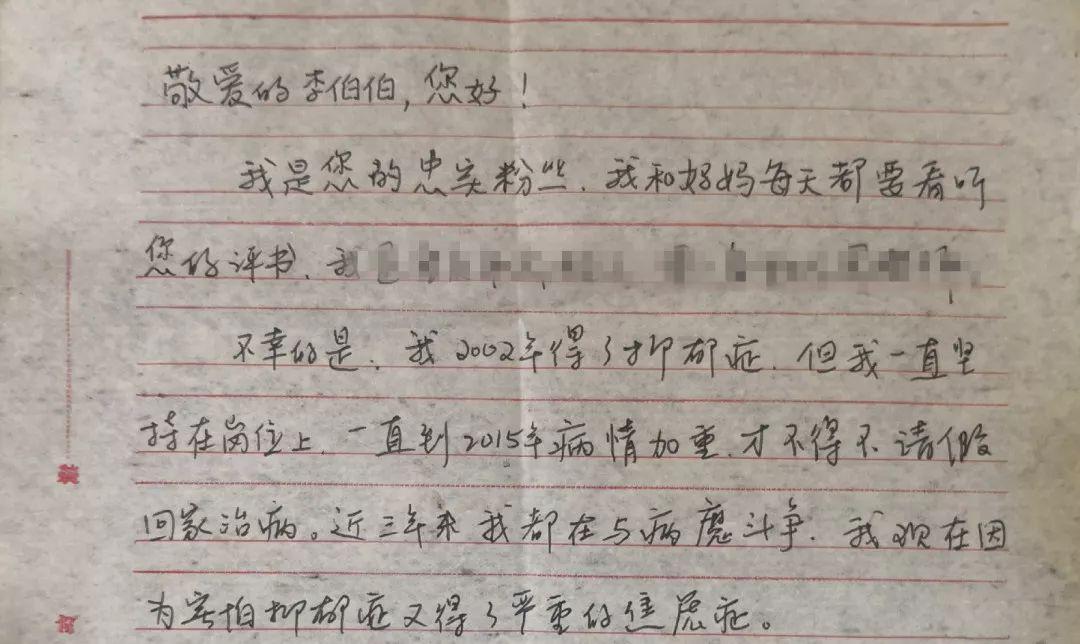 敬爱的李伯伯,您好!
我是您的忠实粉丝.我和妈妈每天都要看听
您的评书.我
不幸的是.我2002年得了抑郁症.但我一直坚
持在岗位上.一直到2015年病情加重.才不得不请假
回家治病。近三年来我都在与病魔斗争.我现在因
为害怕抑郁症又得了严重的焦虑症。
装